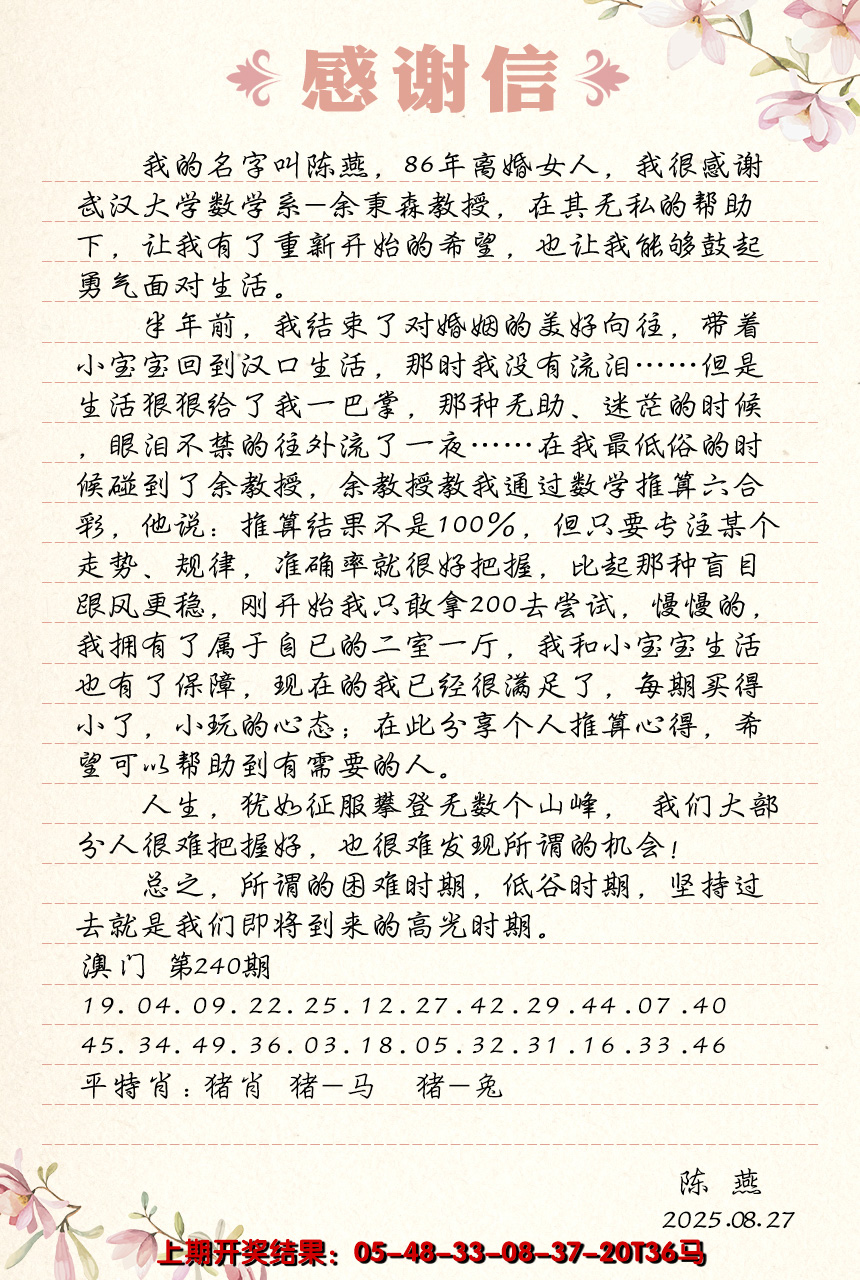 感谢信
我的名字叫陈燕，86年离婚女人，我很感谢
武汉大学数学系-余秉森教授，在其无私的帮助
下，让我有了重新开始的希望，也让我能够鼓起
勇气面对生活。
半年前，我结束了对婚姻的美好向往，带着
小宝宝回到汉口生活，那时我没有流泪……但是
生活狠狠给了我一巴掌，那种无助、迷茫的时候
，眼泪不禁的往外流了一夜……在我最低俗的时
候碰到了余教授，余教授教我通过数学推算六合
彩，他说：推算结果不是100%，但只要专注某个
走势、规律，准确率就很好把握，比起那种盲目
跟风更稳，刚开始我只敢拿200去尝试，慢慢的，
我拥有了属于自已的二室一厅，我和小宝宝生活
也有了保障，现在的我已经很满足了，每期买得
小了，小玩的心态；在此分享个人推算心得，希
望可以帮助到有需要的人。
人生，犹如征服攀登无数个山峰， 我们大部
分人很难把握好，也很难发现所谓的机会！
总之，所谓的困难时期，低谷时期，坚持过
去就是我们即将到来的高光时期。
澳门 第240期
19.04.09.22.25.12.27.42.29.44.07.40
45.34.49.36.03.18.05.32.31.16.33.46
平特肖：猪肖 猪-马 猪-兔
陈 燕
2025.08.27
上期开奖结果：05-48-33-08-37-20T36马